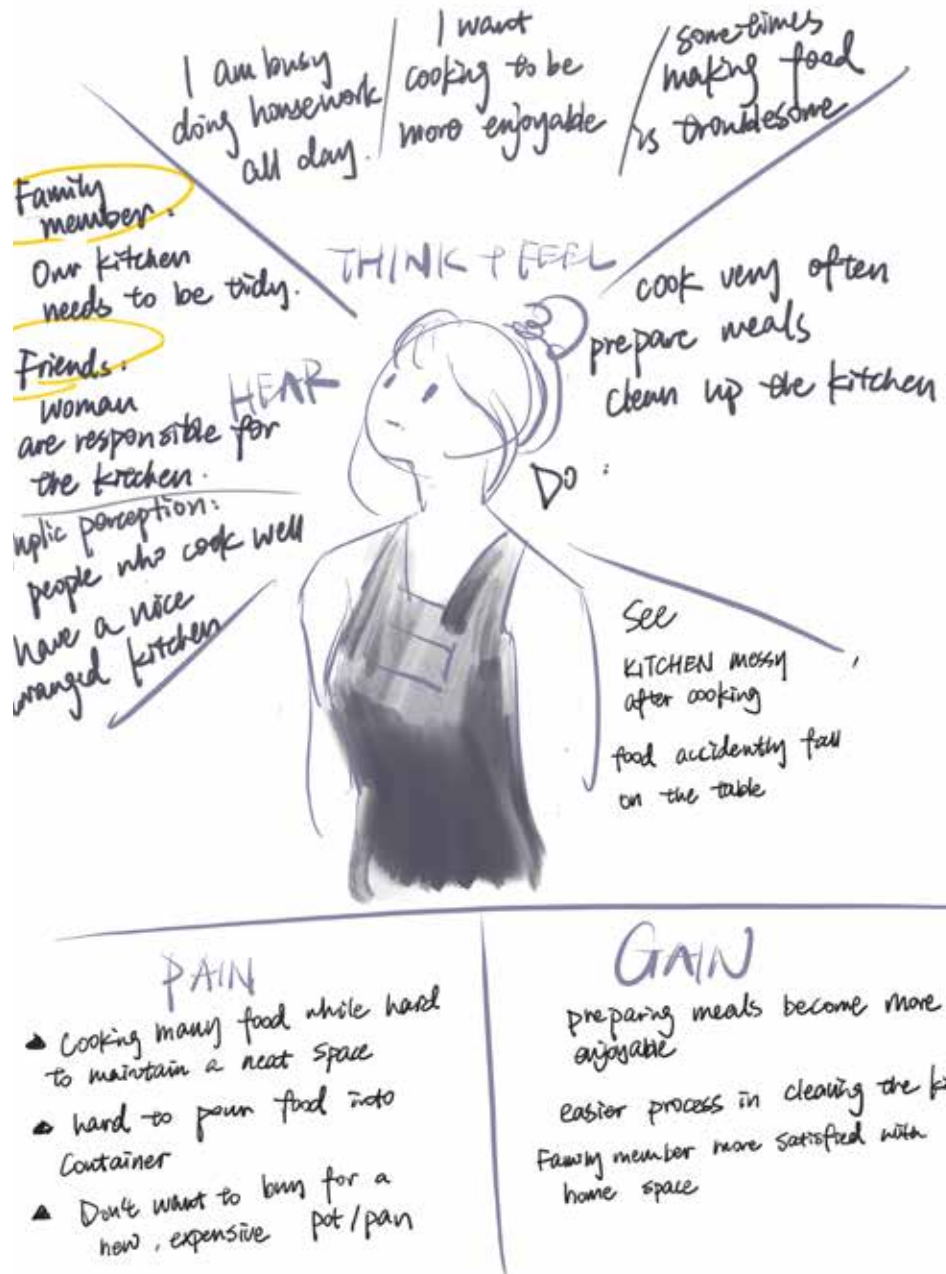 I am busy
doing housework
all day.
I want
cooking to be
more enjoyable
sometimes
making food
is troublesome
THINK & FEEL
Family
member:
Our kitchen
needs to be tidy.
Friends:
woman
are responsible for
the kitchen.
HEAR
people who cook well
have a nice
kitchen
cook very often
prepare meals
clean up the kitchen
Do:
See
KITCHEN messy
after cooking
food accidently fall
on the table
PAIN
Cooking many food while hard
to maintain a neat space
hard to pour food into
Container
Don't want to buy for a
new, expensive pot/pan
GAIN
preparing meals become more
enjoyable
easier process in cleaning the
Family member more satisfied with
home space